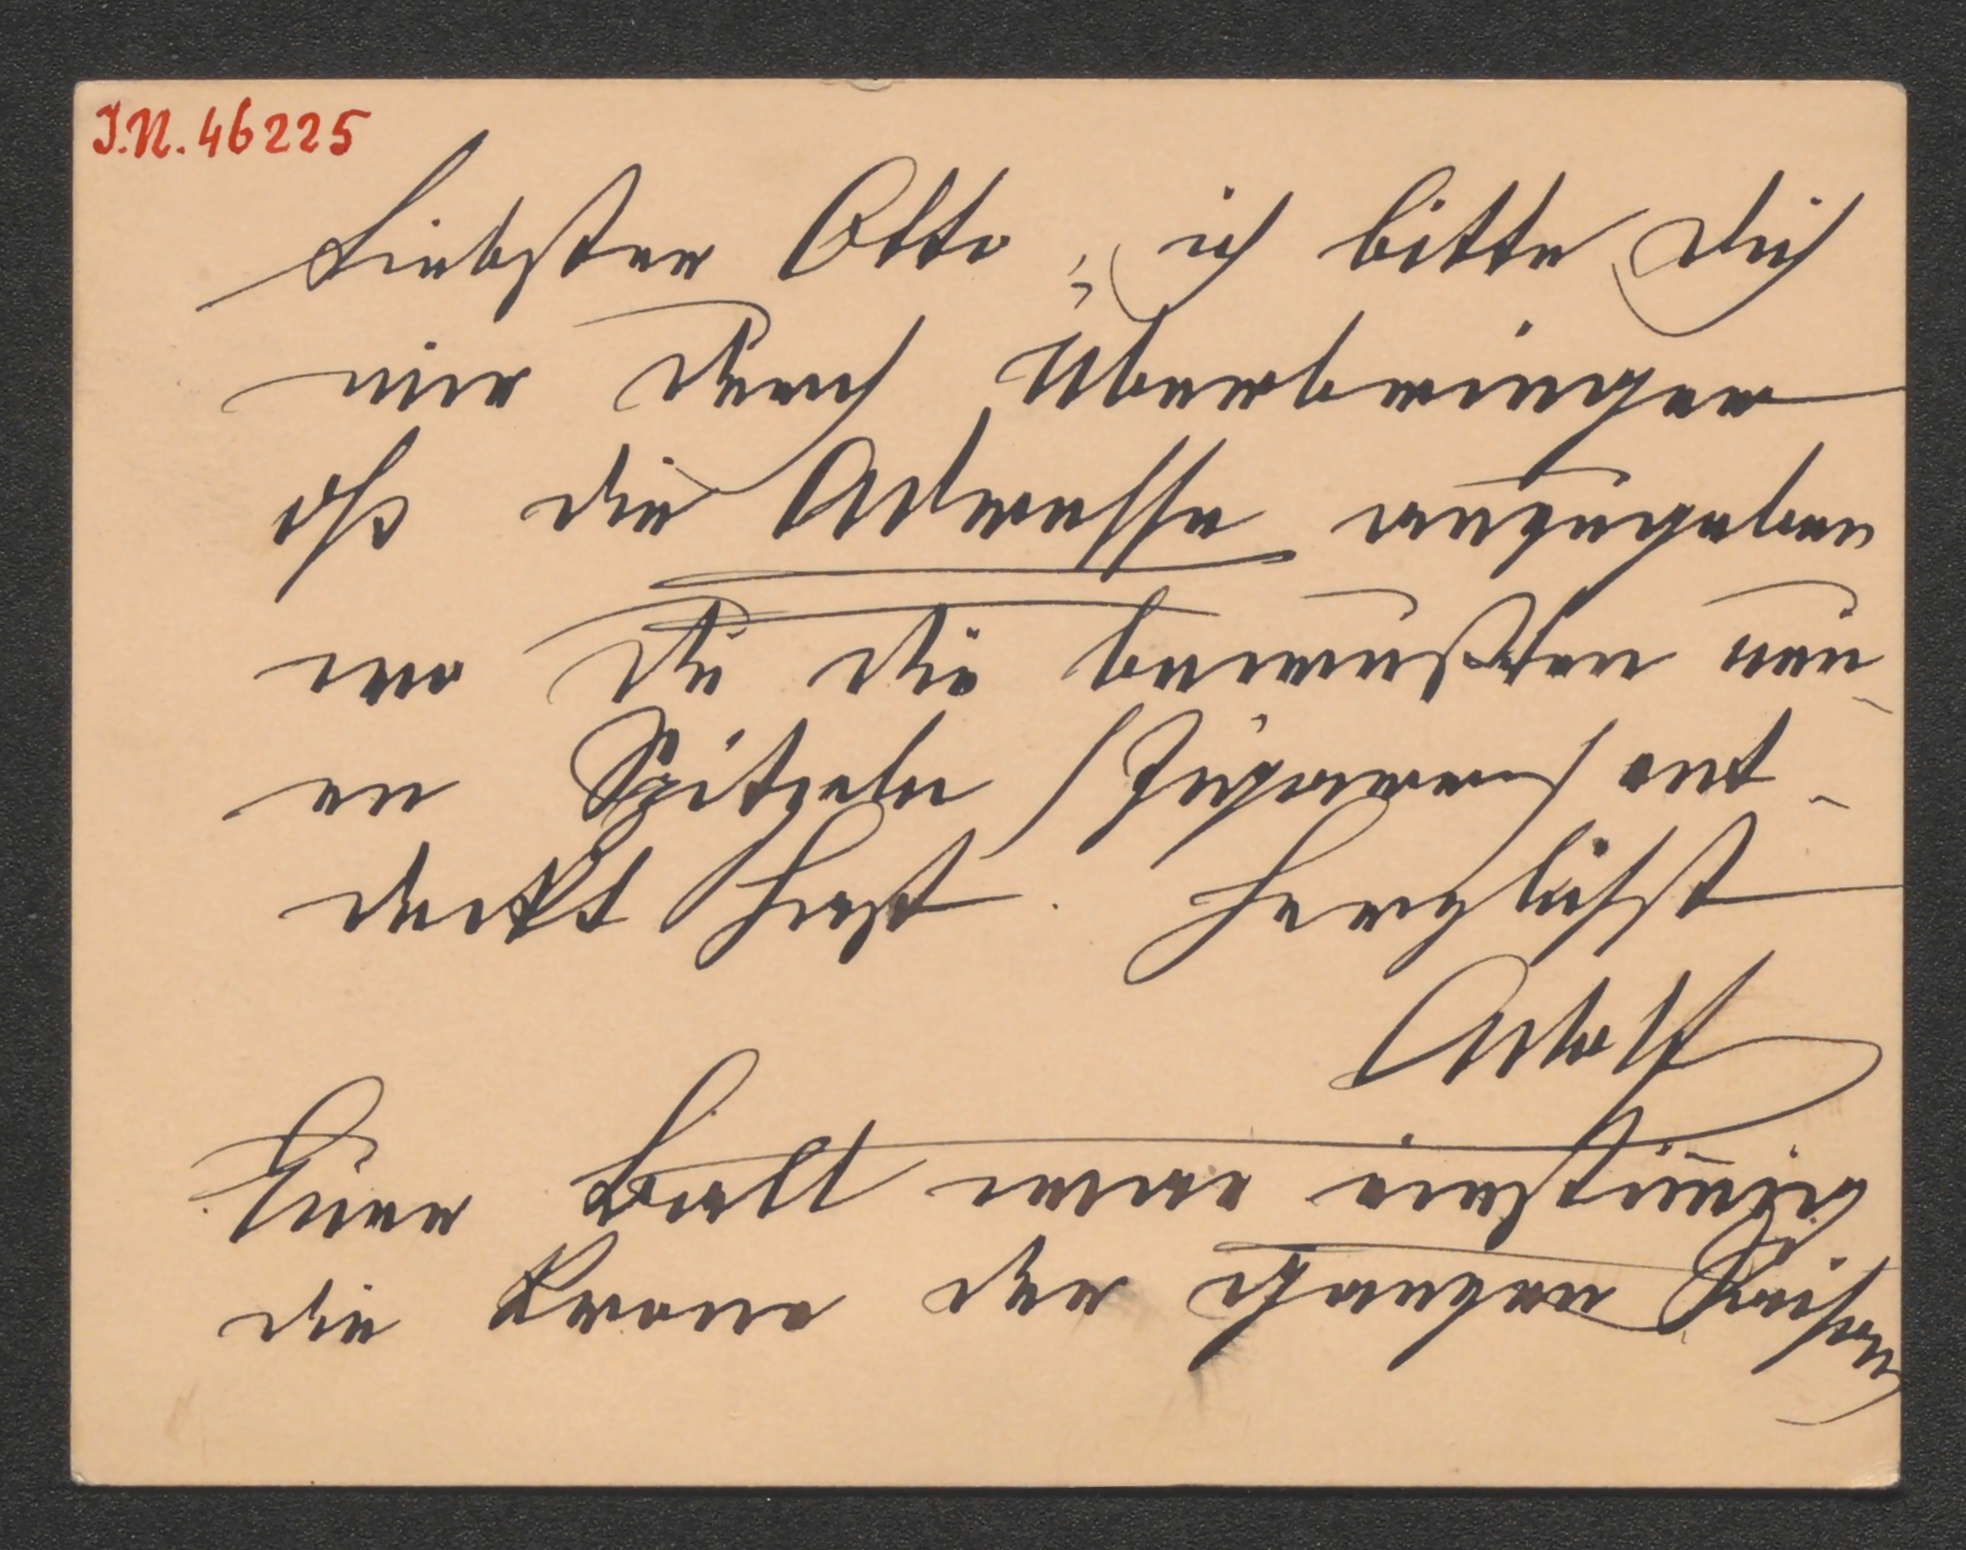 I.N. 46225
Liebster Otto, ich bitte Dich
mir durch Überbringer
die Adresse anzugeben
wo Du die bewußten neu-
en Spitzeln (Zigarren) ent-
deckt hast. Herzlichst
Adolf
Euer Ball war einstimig
die Krone der ganzen Saison